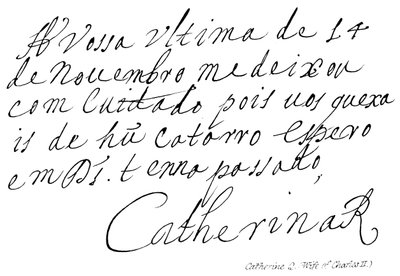 A Vossa ultima de 14
de Novembro me deixou
com Cuidado pois vos quexa
is de hũ Catarro espero
em Ds. tenna passado,
Catherina R
Catherine Q. Wife of Charles II.)